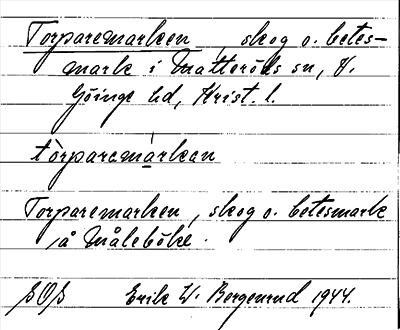 Torparemarken, skog o. betes-
mark i Matteröds sn, V.
Göinge hd, Krist. l.
tòrparemárkan
Torparemarken, skog o. betesmark
på Måleböke.
SOS Erik W. Bergenrud 1944.